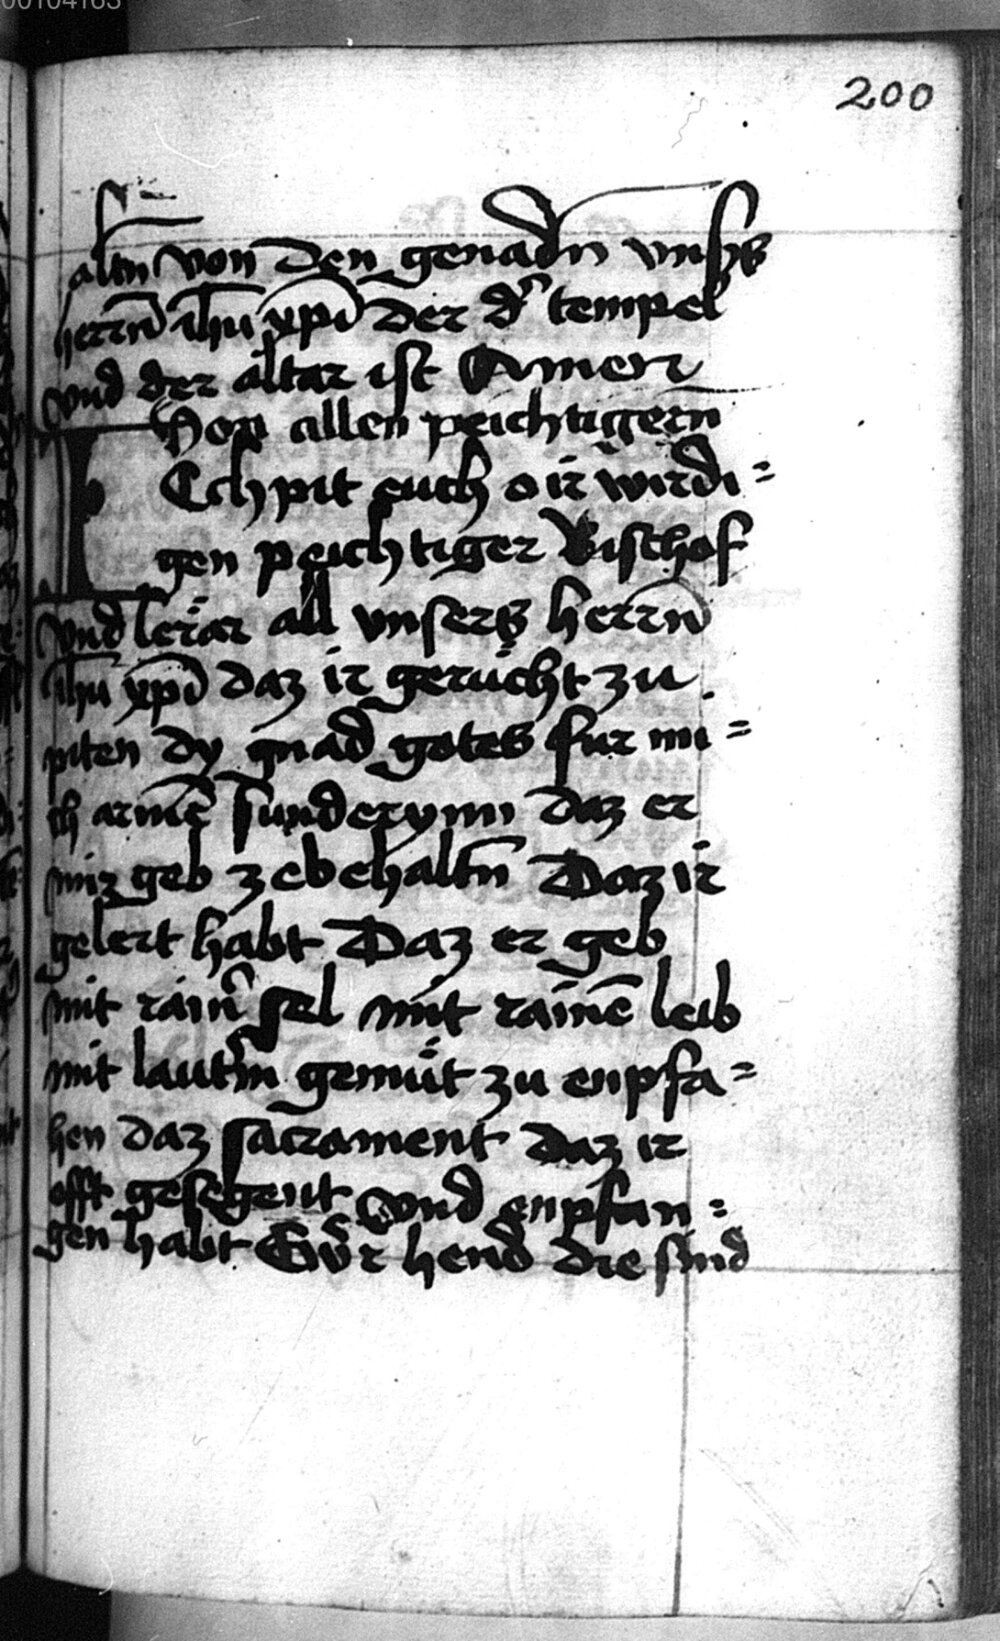 00104163
200
altn von den genadn vnsers
herrn ihu xpi der d' tempel
vnd der altar ist Amen
Von allen peichtigern
Ich pit euch o ir wirdi=
gen peichtiger Bischof
vnd lerär all vnsers herrn
ihu xpi daz ir geruͤcht zu
piten dy gnad gotes fur mi=
ch arme sunderynn daz er
mir geb ze behaltn Daz ir
gelert habt Daz er geb
mit rainr sel mit raine leib
mit lautm gemuͤt zu enpfa=
hen daz sacrament daz ir
offt gesegent vnd enpfan=
gen habt Ewr hend die sind